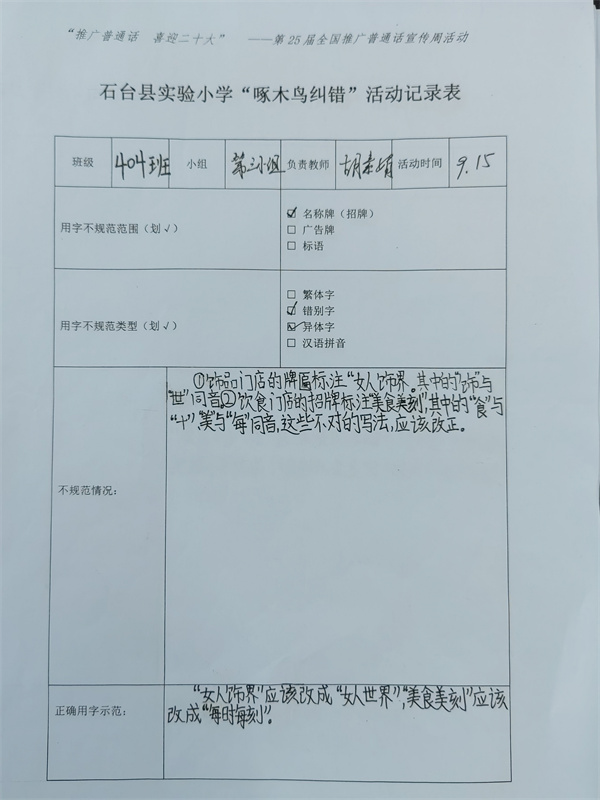 “推广普通话 喜迎二十大” ——第25届全国推广普通话宣传周活动
石台县实验小学“啄木鸟纠错”活动记录表
班级 404班 小组 第三小组 负责教师 活动时间 9.15
用字不规范范围(划√) ☑ 名称牌(招牌)
□ 广告牌
□ 标语
用字不规范类型(划√) □ 繁体字
☑ 错别字
☑ 异体字
□ 汉语拼音
不规范情况:
①饰品门店的牌匾标注“女人饰界。其中的“饰”与
“世”同音②饮食门店的招牌标注“美食美刻”,其中的“食”与
“十”、“美”与“每”同音,这些不对的写法,应该改正。
正确用字示范:
“女人饰界”应该改成“女人世界”,“美食美刻”应该
改成“每时每刻”。